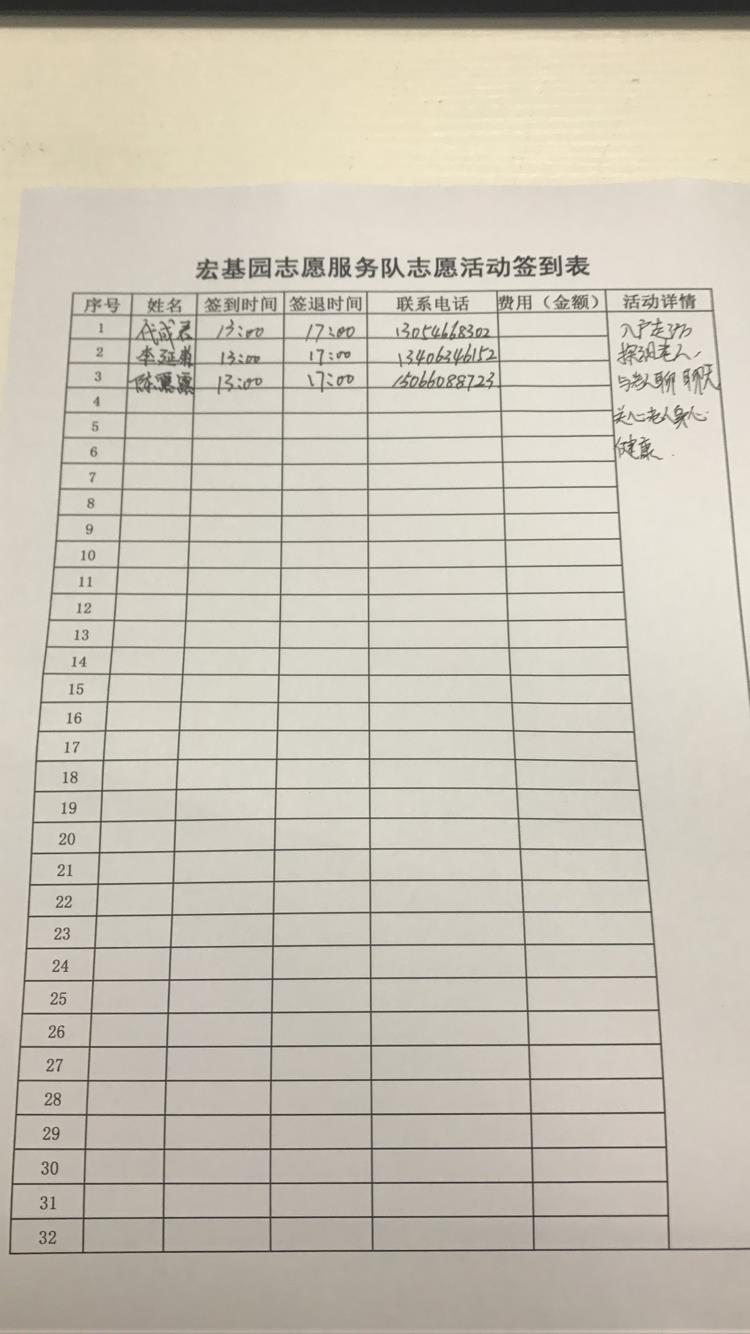 宏基园志愿服务队志愿活动签到表
序号 姓名 签到时间 签退时间 联系电话 费用（金额） 活动详情
1 代成君 13:00 17:00 13054668302 入户走访
2 李延 13:00 17:00 13406346152 探望老人,
3 陈 13:00 17:00 15066088723 与老人聊聊天
4
5 关心老人身心
6 健康.
7
8
9
10
11
12
13
14
15
16
17
18
19
20
21
22
23
24
25
26
27
28
29
30
31
32